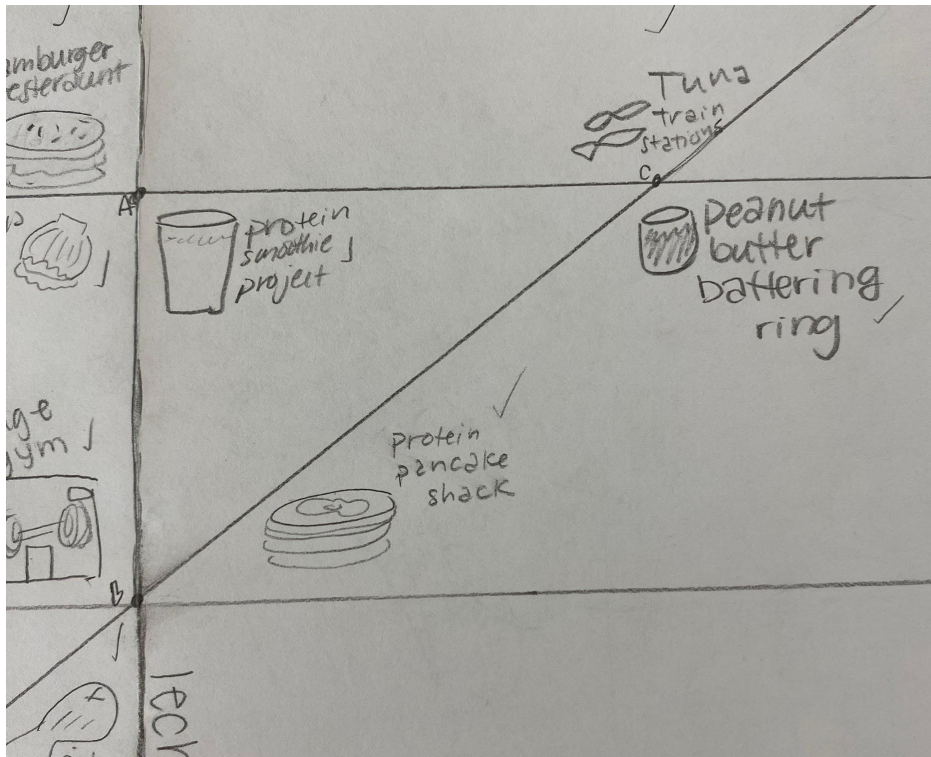 amburger
esteraunt
Tuna
train
stations
C
A
protein
smoothie
project
peanut
butter
battering
ring
ge
gym
protein
pancake
shack
B
Tech